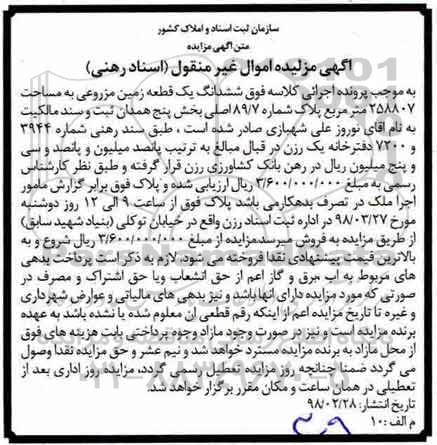 سازمان ثبت اسناد و املاک کشور
متن آگهی مزایده
آگهی مزایده اموال غیر منقول (اسناد رهنی)
به موجب پرونده اجرائی کلاسه فوق ششدانگ یک قطعه زمین مزروعی به مساحت
۲۵۸۸۰۷ متر مربع پلاک شماره ۸۹/۷ اصلی بخش پنج همدان ثبت و سند مالکیت
به نام آقای نوروز علی شهبازی صادر شده است ، طبق سند رهنی شماره ۳۹۴۴
و ۷۲۰۰ دفترخانه یک رزن در قبال مبالغ به ترتیب پانصد میلیون و پانصد و سی
و پنج میلیون ریال در رهن بانک کشاورزی رزن قرار گرفته و طبق نظر کارشناس
رسمی به مبلغ ۳/۶۰۰/۰۰۰/۰۰۰ ریال ارزیابی شده و پلاک فوق برابر گزارش مامور
اجرا ملک در تصرف بدهکار می باشد پلاک فوق از ساعت ۹ الی ۱۲ روز دوشنبه
مورخ ۹۸/۰۳/۲۷ در اداره ثبت اسناد رزن واقع در خیابان توکلی (بنیاد شهید سابق)
از طریق مزایده به فروش می رسد مزایده از مبلغ ۳/۶۰۰/۰۰۰/۰۰۰ ریال شروع و به
بالاترین قیمت پیشنهادی نقدا فروخته می شود، لازم به ذکر است پرداخت بدهی
های مربوط به آب ،برق و گاز اعم از حق انشعاب ویا حق اشتراک و مصرف در
صورتی که مورد مزایده دارای آنها باشد و نیز بدهی های مالیاتی و عوارض شهرداری
و غیره تا تاریخ مزایده اعم از اینکه رقم قطعی آن معلوم شده یا نشده باشد به عهده
برنده مزایده است و نیز در صورت وجود مازاد وجوه پرداختی بابت هزینه های فوق
از محل مازاد به برنده مزایده مسترد خواهد شد و نیم عشر و حق مزایده نقدا وصول
می گردد ضمنا چنانچه روز مزایده تعطیل رسمی گردد، مزایده روز اداری بعد از
تعطیلی در همان ساعت و مکان مقرر برگزار خواهد شد.
تاریخ انتشار: ۹۸/۰۲/۲۸
م الف :۱۰